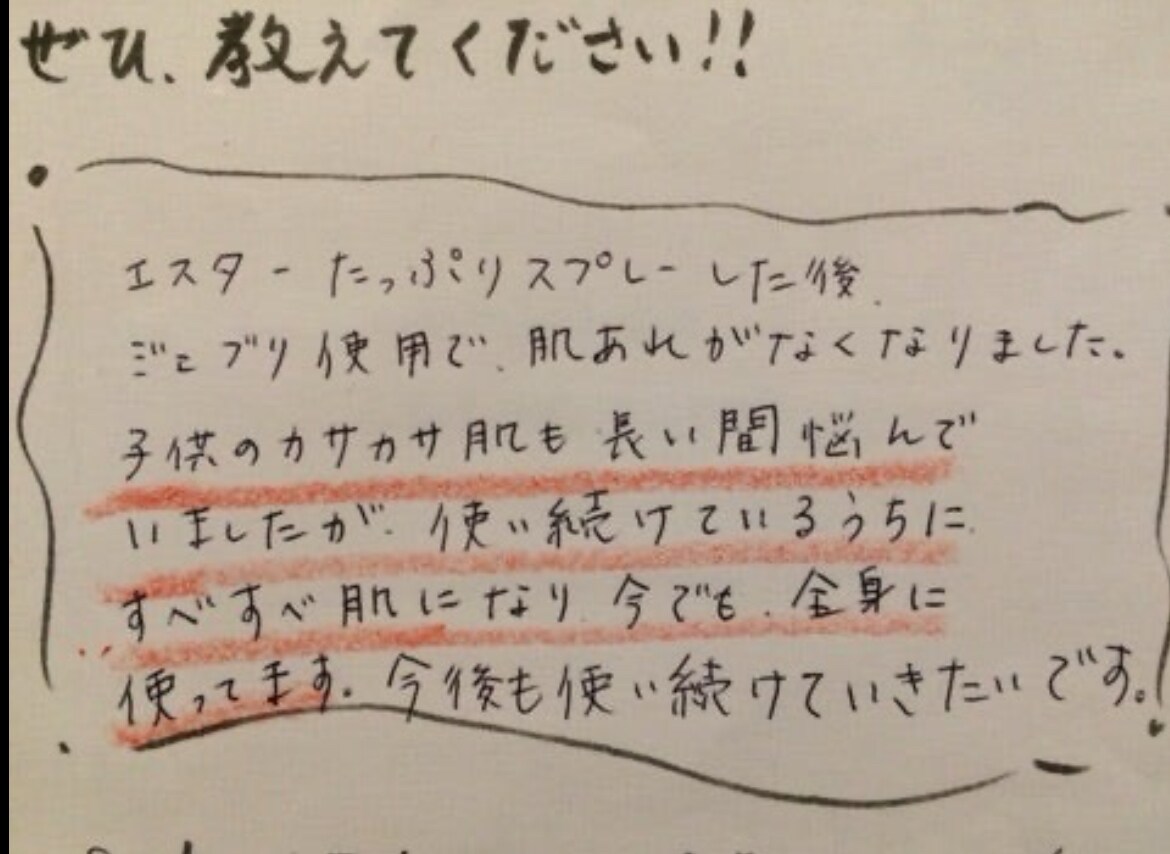 ぜひ、教えてください!!
エスター たっぷりスプレーした後、
ジェブリ使用で、肌あれがなくなりました。
子供のカサカサ肌も長い間悩んで
いましたが、使い続けているうちに
すべすべ肌になり、今でも、全身に
使ってます。今後も使い続けていきたいです。